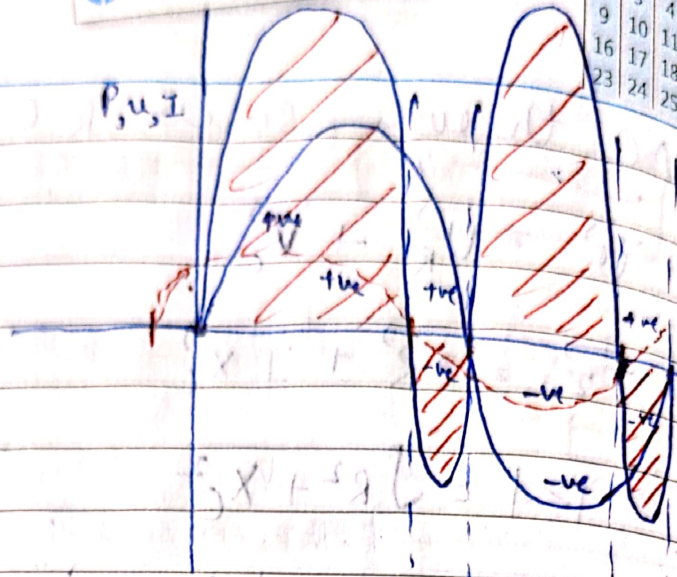 9 10 11
16 17 18
23 24 25
P, u, I
+ve
V
+ve
+ve
+ve
-ve
-ve
-ve
-ve